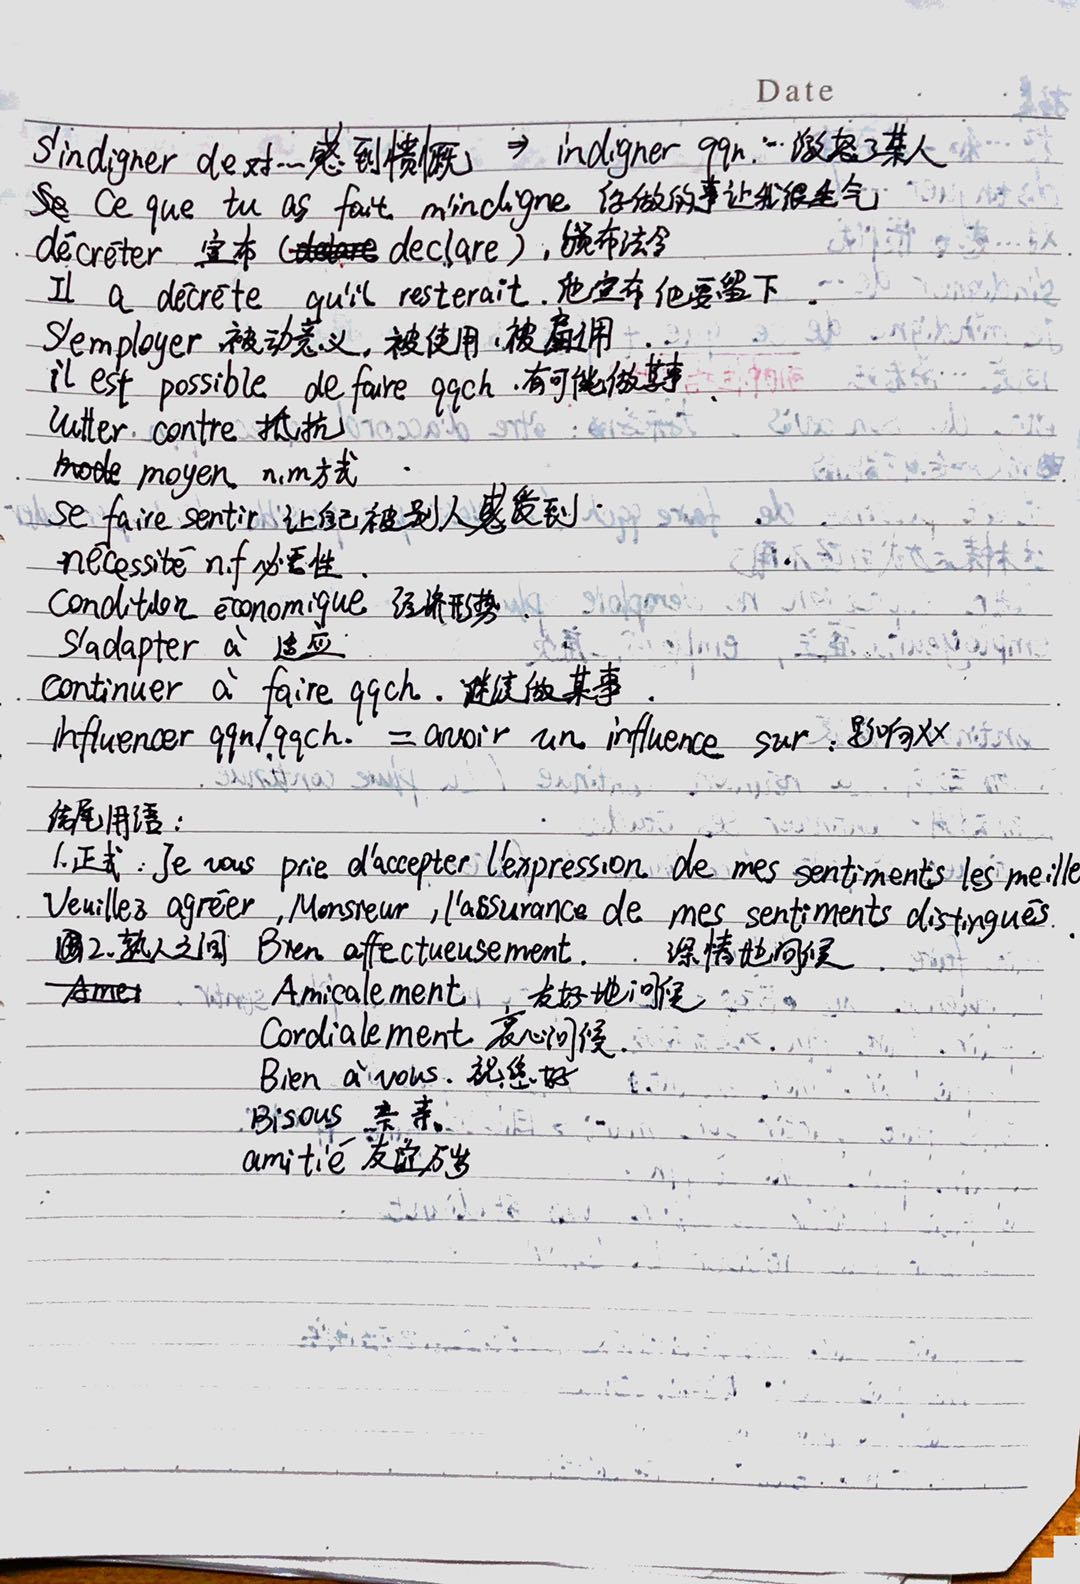 Date
S'indigner de 对…感到愤慨 ⇒ indigner qqn. … 激怒了某人
Ce que tu as fait m'indigne 你做的事让我很生气
décréter 宣布 (declare), 颁布法令
Il a décrété qu'il resterait. 他宣布他要留下.
S'employer 被动意义, 被使用, 被雇用.
il est possible de faire qqch. 有可能做某事.
lutter contre 抵抗
moyen n.m 方式
se faire sentir 让自己被别人感受到
nécessité n.f 必要性.
condition économique 经济形势.
S'adapter à 适应
continuer à faire qqch. 继续做某事.
influencer qqn/qqch. = avoir un influence sur: 影响XX
结尾用语:
1.正式: Je vous prie d'accepter l'expression de mes sentiments les meille
Veuillez agréer, Monsieur, l'assurance de mes sentiments distingués.
2.熟人之间 Bien affectueusement. 深情地问候.
Amicalement 友好地问候
Cordialement 衷心问候.
Bien à vous. 祝您好
Bisous 亲亲。
amitié 友谊万岁